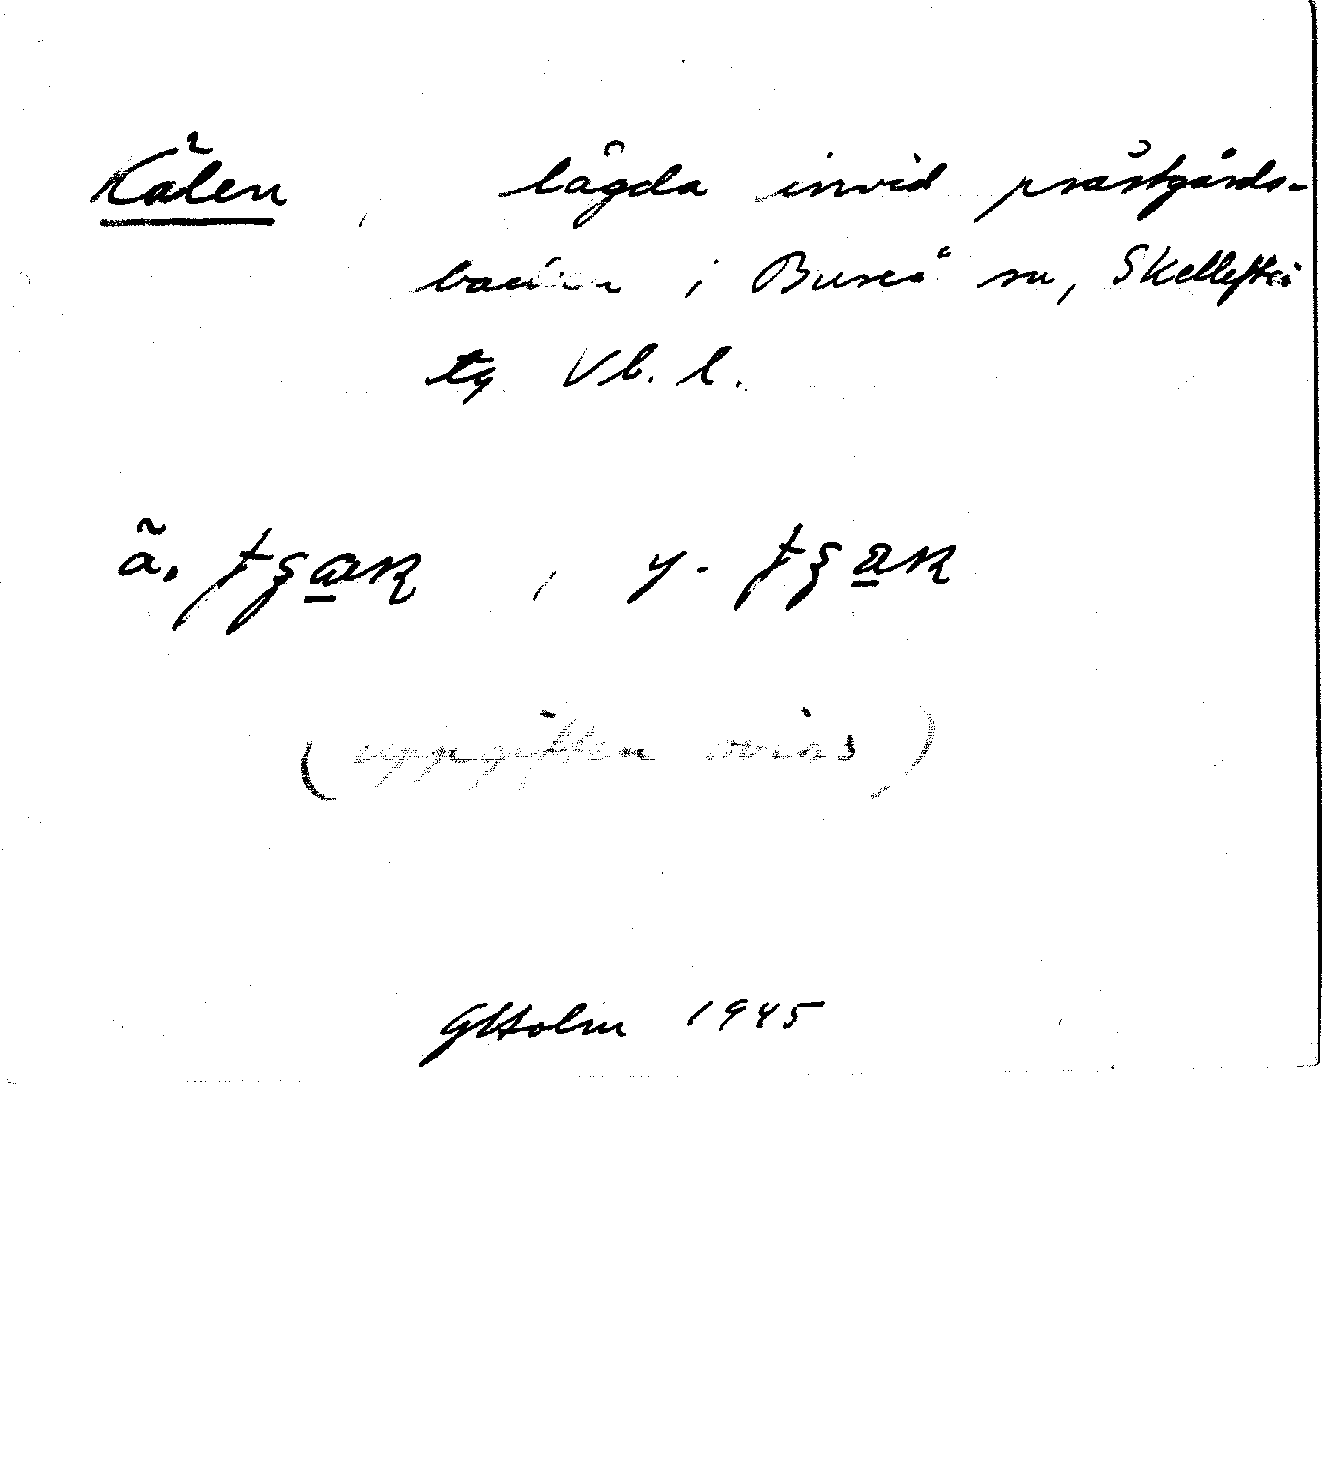 Kälen, lägda invid prästgårds-
backen i Bureå sn, Skellefteå
tg Vb. l.
ä. , y.
(uppgiften oviss)
GHolm 1945